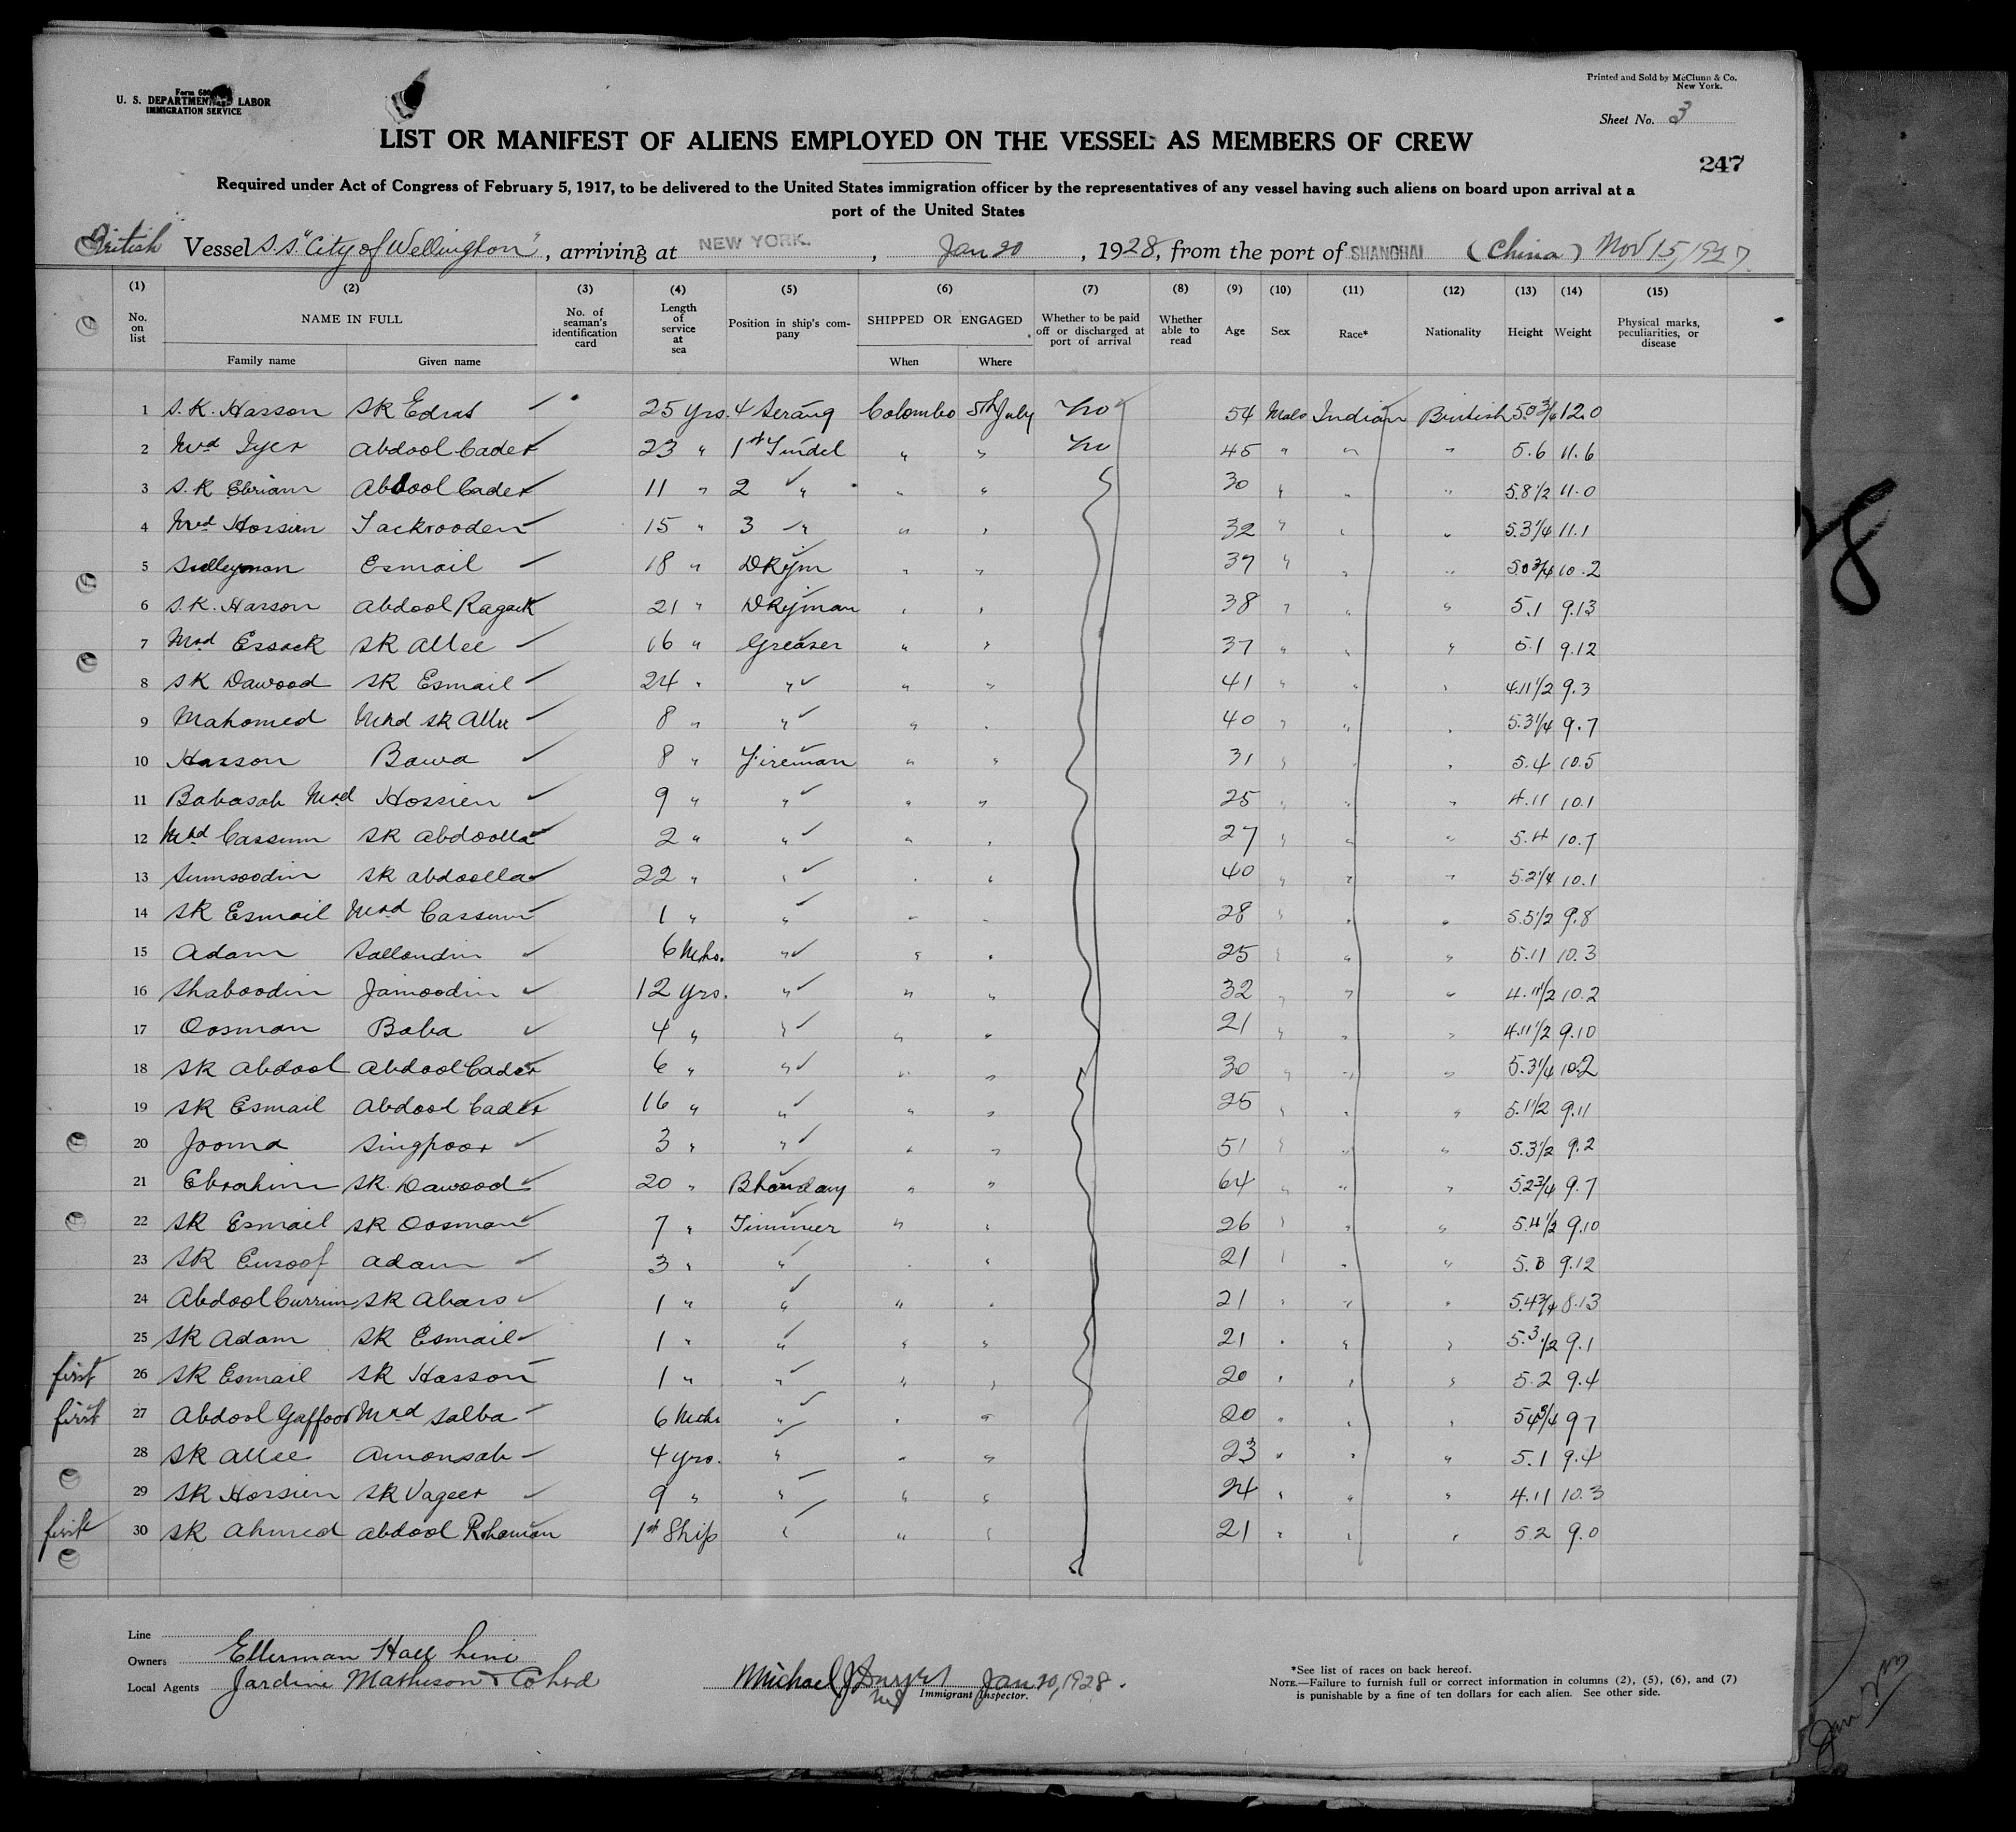 Form 680
U. S. DEPARTMENT LABOR
IMMIGRATION SERVICE
Printed and Sold by McClunn & Co.
New York.
Sheet No. 3
LIST OR MANIFEST OF ALIENS EMPLOYED ON THE VESSEL AS MEMBERS OF CREW
247
Required under Act of Congress of February 5, 1917, to be delivered to the United States immigration officer by the representatives of any vessel having such aliens on board upon arrival at a
port of the United States
British Vessel S.S. "City of Wellington", arriving at NEW YORK. , Jan 20 , 1928, from the port of SHANGHAI (China) Nov 15, 1927.
(1) (2) (3) (4) (5) (6) (7) (8) (9) (10) (11) (12) (13) (14) (15)
No. on list NAME IN FULL No. of seaman's identification card Length of service at sea Position in ship's company SHIPPED OR ENGAGED Whether to be paid off or discharged at port of arrival Whether able to read Age Sex Race* Nationality Height Weight Physical marks, peculiarities, or disease
Family name Given name When Where
1 S.K. Hasson SK Edrus 25 yrs. 4 Serang Colombo 5th July No 54 Male Indian British 5.0 3/4 12.0
2 Md Iyer Abdool Cader 23 " 1st Tindel " " No 45 " " " 5.6 11.6
3 S.K Ebriam Abdool Cader 11 " 2 " " " 30 " " " 5.8 1/2 11.0
4 Md Hossien Jackrooden 15 " 3 " " " 32 " " " 5.3 1/4 11.1
5 Sulleyman Esmail 18 " DKym " " 37 " " " 5.0 3/4 10.2
6 S.K. Hasson Abdool Ragack 21 " DKyman " " 38 " " " 5.1 9.13
7 Md Essack SK Allee 16 " Greaser " " 37 " " " 5.1 9.12
8 SK Dawood SK Esmail 24 " " " " 41 " " " 4.11 1/2 9.3
9 Mahomed Md SK Allee 8 " " " " 40 " " " 5.3 1/4 9.7
10 Hasson Bawa 8 " Fireman " " 31 " " " 5.4 10.5
11 Babasab Md Hossien 9 " " " " 25 " " " 4.11 10.1
12 Md Cassum SK Abdoolla 2 " " " " 27 " " " 5.4 10.7
13 Sumsoodin SK Abdoolla 22 " " " " 40 " " " 5.2 1/4 10.1
14 SK Esmail Md Cassum 1 " " " " 28 " " " 5.5 1/2 9.8
15 Adam Sallondin 6 Mths. " " " 25 " " " 5.11 10.3
16 Shaboodin Jamoodin 12 yrs. " " " 32 " " " 4.11 1/2 10.2
17 Oosman Baba 4 " " " " 21 " " " 4.11 1/2 9.10
18 SK Abdool Abdool Cader 6 " " " " 30 " " " 5.3 1/4 10.2
19 SK Esmail Abdool Cader 16 " " " " 25 " " " 5.1 1/2 9.11
20 Jooma Singpoor 3 " " " " 51 " " " 5.3 1/2 9.2
21 Ebrahim SK Dawood 20 " Bhandary " " 64 " " " 5.2 3/4 9.7
22 SK Esmail SK Oosman 7 " Timmer " " 26 " " " 5.4 1/2 9.10
23 SK Eusoof Adam 3 " " " " 21 " " " 9.12
24 Abdool Currim SK Abars 1 " " " " 21 " " " 5.4 3/4 8.13
25 SK Adam SK Esmail 1 " " " " 21 " " " 5.3 1/2 9.1
first 26 SK Esmail SK Hasson 1 " " " " 20 " " " 5.2 9.4
first 27 Abdool Gaffoor Md Salba 6 Mths " " " 20 " " " 5 4 3/4 9 7
28 SK Allee Amonsab 4 yrs. " " " 23 " " " 5.1 9.4
29 SK Hossien SK Vageer 9 " " " " 24 " " " 4.11 10.3
first 30 SK Ahmed Abdool Rahaman 1st Ship " " " 21 " " " 5.2 9.0
Line
Owners Ellerman Hall Line
Local Agents Jardine Matheson & Co Ltd
Michael J Jan 20, 1928.
Immigrant Inspector.
*See list of races on back hereof.
NOTE.—Failure to furnish full or correct information in columns (2), (5), (6), and (7)
is punishable by a fine of ten dollars for each alien. See other side.